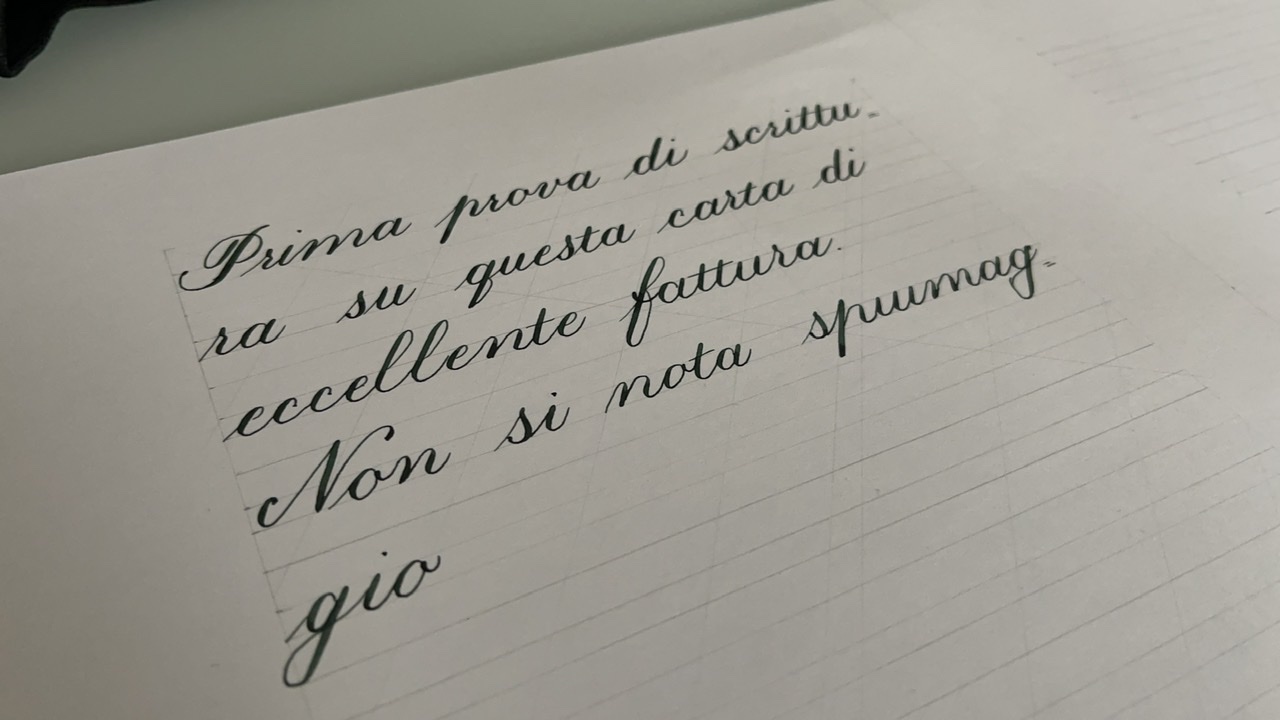 Prima prova di scrittu-
ra su questa carta di
eccellente fattura.
Non si nota spiumag-
gio